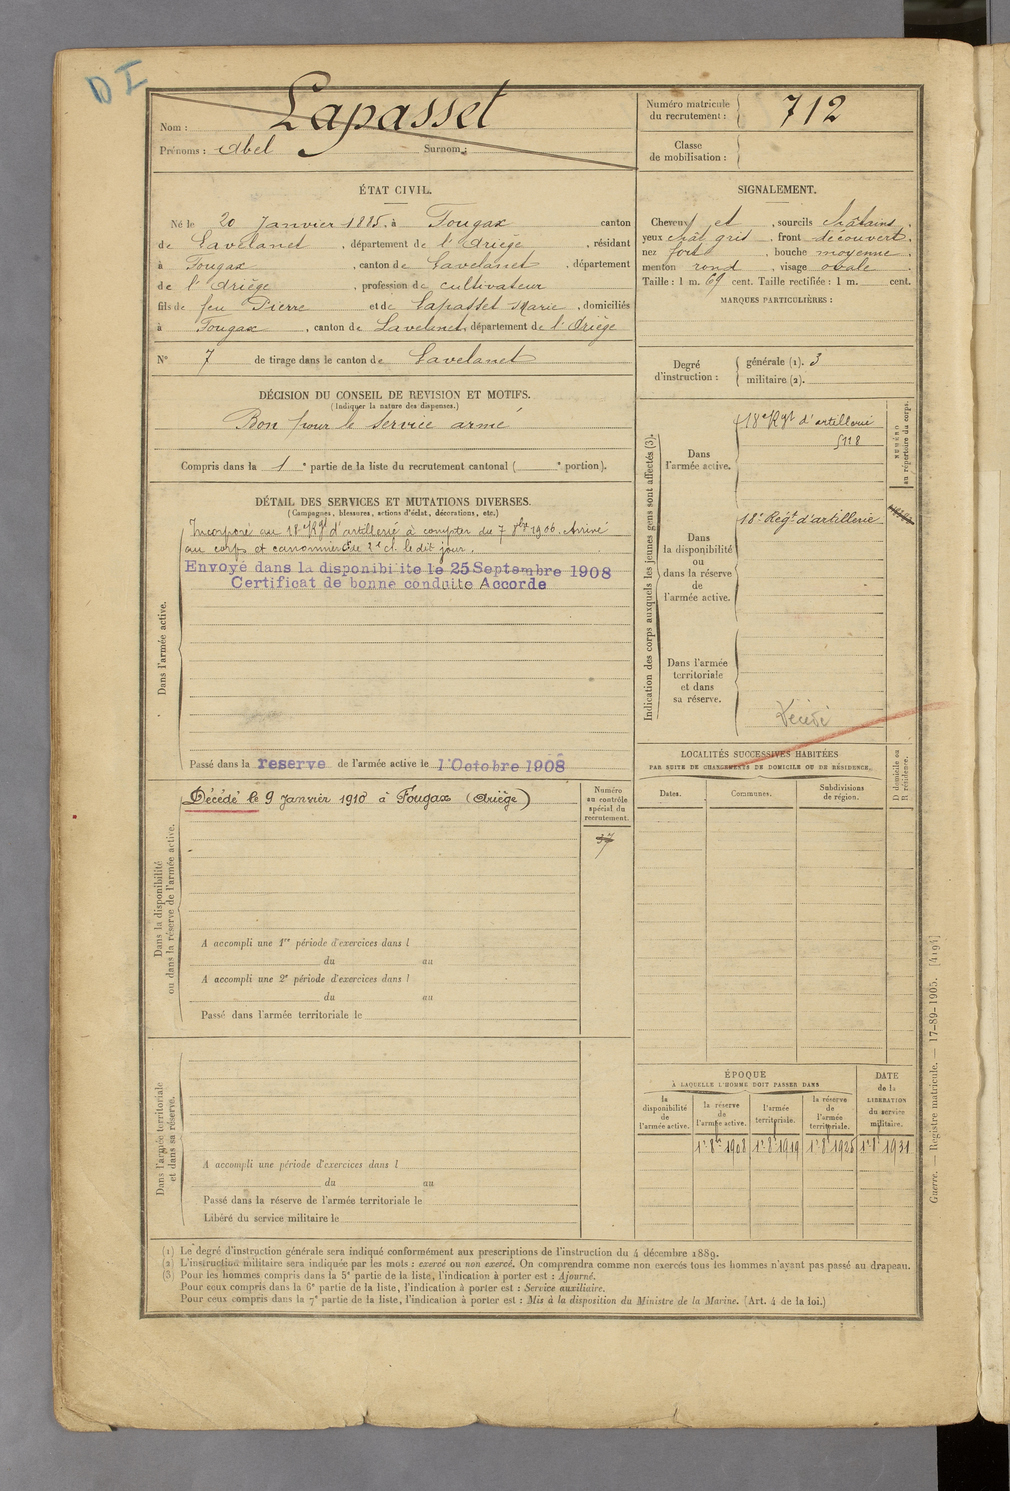 D I
Nom : Lapasset
Prénoms : Abel Surnom :
Numéro matricule
du recrutement : 712
Classe
de mobilisation :
ÉTAT CIVIL.
Né le 20 Janvier 1885, à Fougax canton
de Lavelanet, département de l'Ariège, résidant
à Fougax, canton de Lavelanet, département
de l'Ariège, profession de cultivateur
fils de feu Pierre et de Lapasset Marie, domiciliés
à Fougax, canton de Lavelanet, département de l'Ariège
N° 7 de tirage dans le canton de Lavelanet
SIGNALEMENT.
Cheveux et, sourcils châtains.
yeux chât gris, front découvert.
nez fort, bouche moyenne.
menton rond, visage ovale.
Taille : 1 m. 69 cent. Taille rectifiée : 1 m. cent.
MARQUES PARTICULIÈRES :
Degré
d'instruction :
générale (1). 3
militaire (2).
DÉCISION DU CONSEIL DE REVISION ET MOTIFS.
(Indiquer la nature des dispenses.)
Bon pour le service armé
Compris dans la 1e partie de la liste du recrutement cantonal ( e portion).
DÉTAIL DES SERVICES ET MUTATIONS DIVERSES.
(Campagnes, blessures, actions d'éclat, décorations, etc.)
Dans l'armée active.
Incorporé au 18e Rgt d'artillerie à compter du 7 8bre 1906. Arrivé
au corps et canonnier de 2e cl. le dit jour.
Envoyé dans la disponibilite le 25 Septembre 1908
Certificat de bonne conduite Accorde
Passé dans la reserve de l'armée active le 1 Octobre 1908
Dans la disponibilité
ou dans la réserve de l'armée active.
Décédé le 9 Janvier 1910 à Fougax (Ariège)
Numéro
au contrôle
spécial du
recrutement.
A accompli une 1re période d'exercices dans l
du au
A accompli une 2e période d'exercices dans l
du au
Passé dans l'armée territoriale le
Dans l'armée territoriale
et dans sa réserve.
A accompli une période d'exercices dans l
du au
Passé dans la réserve de l'armée territoriale le
Libéré du service militaire le
Indication des corps auxquels les jeunes gens sont affectés (3).
NUMÉRO
au répertoire du corps.
Dans
l'armée active.
18e Rgt d'artillerie
5118
Dans
la disponibilité
ou
dans la réserve
de
l'armée active.
18e Régt d'artillerie
Dans l'armée
territoriale
et dans
sa réserve.
Décédé
LOCALITÉS SUCCESSIVES HABITÉES
PAR SUITE DE CHANGEMENTS DE DOMICILE OU DE RÉSIDENCE.
Dates.
Communes.
Subdivisions
de région.
D domicile ou
R résidence.
ÉPOQUE
À LAQUELLE L'HOMME DOIT PASSER DANS
la
disponibilité
de
l'armée active.
la réserve
de
l'armée active.
l'armée
territoriale.
la réserve
de
l'armée
territoriale.
DATE
de la
LIBÉRATION
du service
militaire.
1er 8bre 1908 1er 8bre 1919 1er 8bre 1925 1er 8bre 1931
(1) Le degré d'instruction générale sera indiqué conformément aux prescriptions de l'instruction du 4 décembre 1889.
(2) L'instruction militaire sera indiquée par les mots : exercé ou non exercé. On comprendra comme non exercés tous les hommes n'ayant pas passé au drapeau.
(3) Pour les hommes compris dans la 5e partie de la liste, l'indication à porter est : Ajourné.
Pour ceux compris dans la 6e partie de la liste, l'indication à porter est : Service auxiliaire.
Pour ceux compris dans la 7e partie de la liste, l'indication à porter est : Mis à la disposition du Ministre de la Marine. (Art. 4 de la loi.)
Guerre. — Registre matricule. — 17-89-1905. [4194]